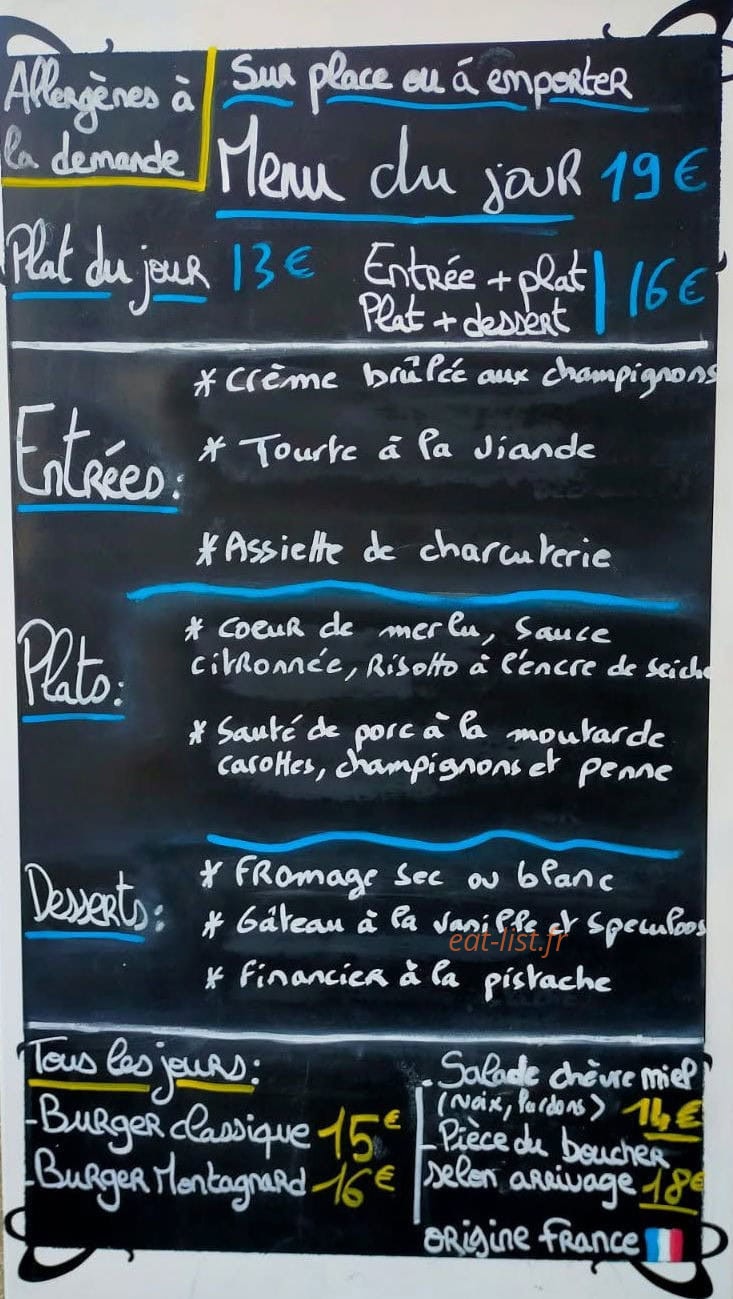 Allergènes à
la demande
Sur place ou á emporter
Menu du jour 19€
Plat du jour 13€
Entrée + plat
Plat + dessert
16€
Entrées:
* Crème brûlée aux champignons
* Tourte à la viande
* Assiette de charcuterie
Plats:
* Coeur de merlu, sauce
citronnée, Risotto à l'encre de seiche
* Sauté de porc à la moutarde
carottes, champignons et penne
Desserts:
* Fromage sec ou blanc
* Gâteau à la vanille et speculoos
* Financier à la pistache
eat-list.fr
Tous les jours:
- Burger classique 15€
- Burger Montagnard 16€
- Salade chèvre miel
(Noix, lardons) 14€
- Pièce du boucher
selon arrivage 18€
origine France